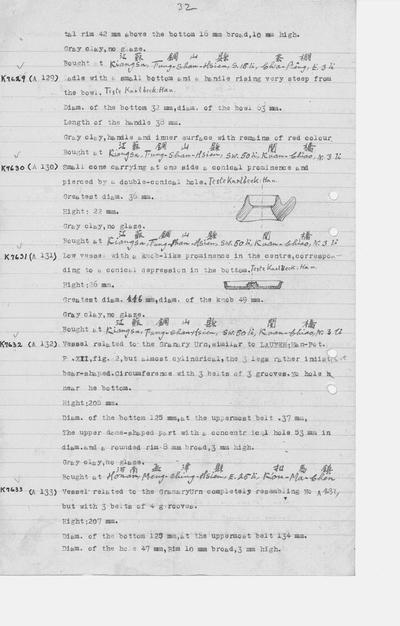 32
tal rim 42 mm above the bottom 16 mm broad,10 mm high.
Gray clay,no glaze.
江蘇 銅山縣
Bought at Kiangsu, Tung-Shan-Hsien, S.18 li, E.3 li
K7629 (A 129) Ladle with a small bottom and a handle rising very steep from
the bowl. Teste Karlbeck: Han.
Diam. of the bottom 32 mm,diam. of the bowl 63 mm.
Length of the handle 38 mm.
Gray clay,handle and inner surface with remains of red colour
江蘇 銅山縣 閣橋
Bought at Kiangsu, Tung-Shan-Hsien, SW.50 li, Kuan-Chiao, N.3 li
K7630 (A 130) Small cone carrying at one side a conical prominence and
pierced by a double-conical hole. Teste Karlbeck: Han.
Greatest diam. 36 mm.
Hight: 22 mm.
Gray clay,no glaze.
江蘇 銅山縣 閣橋
Bought at Kiangsu, Tung-Shan-Hsien, SW.50 li, Kuan-Chiao, N.3 li
K7631 (A 131) Low vessel with a knob-like prominence in the centre,correspon-
ding to a conical depression in the bottom. Teste Karlbeck: Han.
Hight:26 mm.
Greatest diam. 146 mm,diam. of the knob 49 mm.
Gray clay,no glaze.
江蘇 銅山縣 閣橋
Bought at Kiangsu, Tung-Shan-Hsien, SW.50 li, Kuan-Chiao, N.3 li
K7632 (A 132) Vessel related to the Granary Urn,similar to LAUFER:Han-Pot.
P.XII,fig. 2,but almost cylindrical,the 3 legs rather indist
bear-shaped.Circumference with 3 belts of 3 grooves.No hole
near the bottom.
Hight:205 mm.
Diam. of the bottom 125 mm,at the uppermost belt 137 mm.
The upper dome-shaped part with a concentrical hole 53 mm in
diam.and a rounded rim 8 mm broad,3 mm high.
Gray clay,no glaze.
河南 孟津縣 扣馬鎮
Bought at Honan, Meng-Ching-Hsien, E.25 li, Kou-Ma-Chen
K7633 (A 133) Vessel related to the GranaryUrn completely resembling No A 132,
but with 3 belts of 4 grooves.
Hight:207 mm.
Diam. of the bottom 125 mm,at the uppermost belt 134 mm.
Diam. of the hole 47 mm,Rim 10 mm broad,3 mm high.